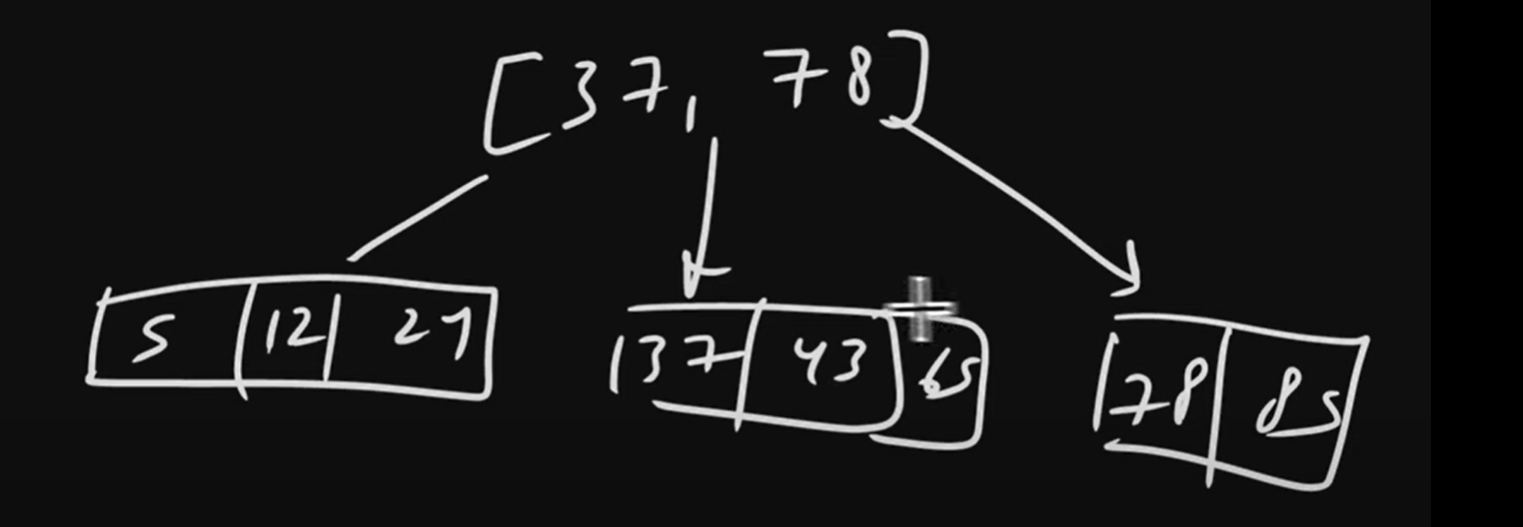 [37, 78]
5 12 27
37 43 65
78 85